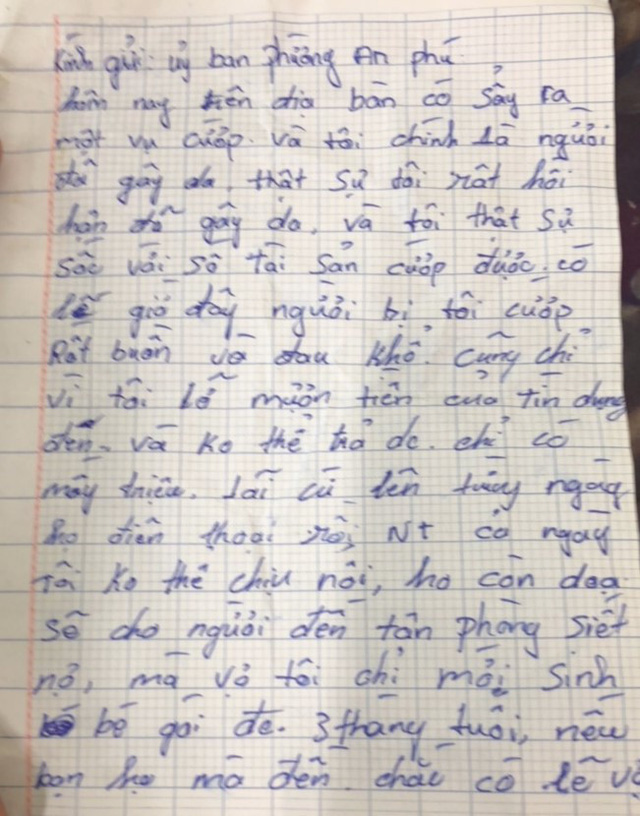 Kính gửi: uỷ ban phường An phú
hôm nay trên địa bàn có sảy ra
một vụ cướp. và tôi chính là người
đã gây da. thật sự tôi rất hối
hận đã gây da, và tôi thật sự
sốc với số tài sản cướp được. có
lẽ giờ đây người bị tôi cướp
Rất buồn và đau khổ. cũng chỉ
vì tôi lỡ mượn tiền của tín dụng
đen. và ko thể trả dc. chỉ có
mấy triệu. lãi cứ lên từng ngày
họ điện thoại rồi NT cả ngày
tôi ko thể chịu nổi, họ còn dọa
sẽ cho người đến tận phòng siết
nợ, mà vợ tôi chỉ mới sinh
bé gái đc. 3 tháng tuổi, nếu
bọn họ mà đến. chắc có lẽ vợ